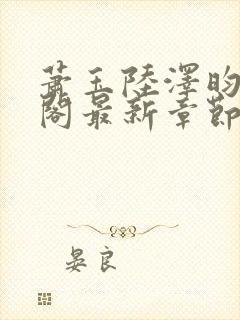 蕭玉陸澤昀
閣最新章節
晏良